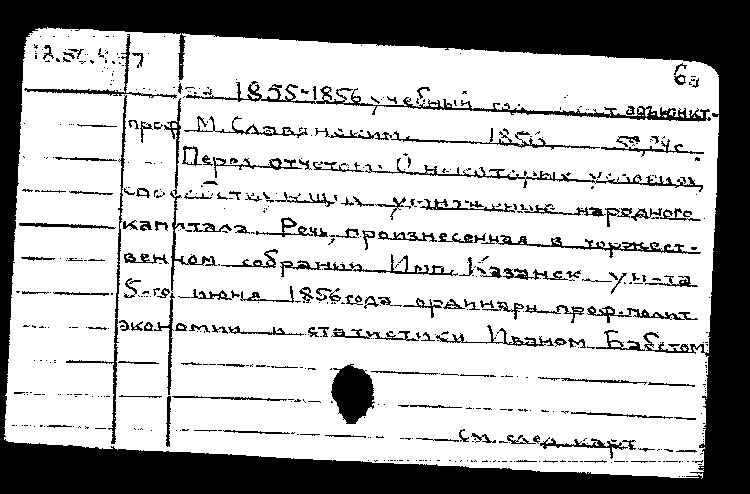 6а
за 1855-1856 учебный год адъюнкт.
проф М. Славянским. 1856. 58,94с.
Перед отчетом: О некоторых условиях,
способствующих умножению народного
капитала. Речь, произнесенная в торжест-
венном собрании Имп. Казанск. ун-та
5-го июня 1856 года ординарн проф. полит
экономии и статистики Иваном Бабстом
см. след. карт.